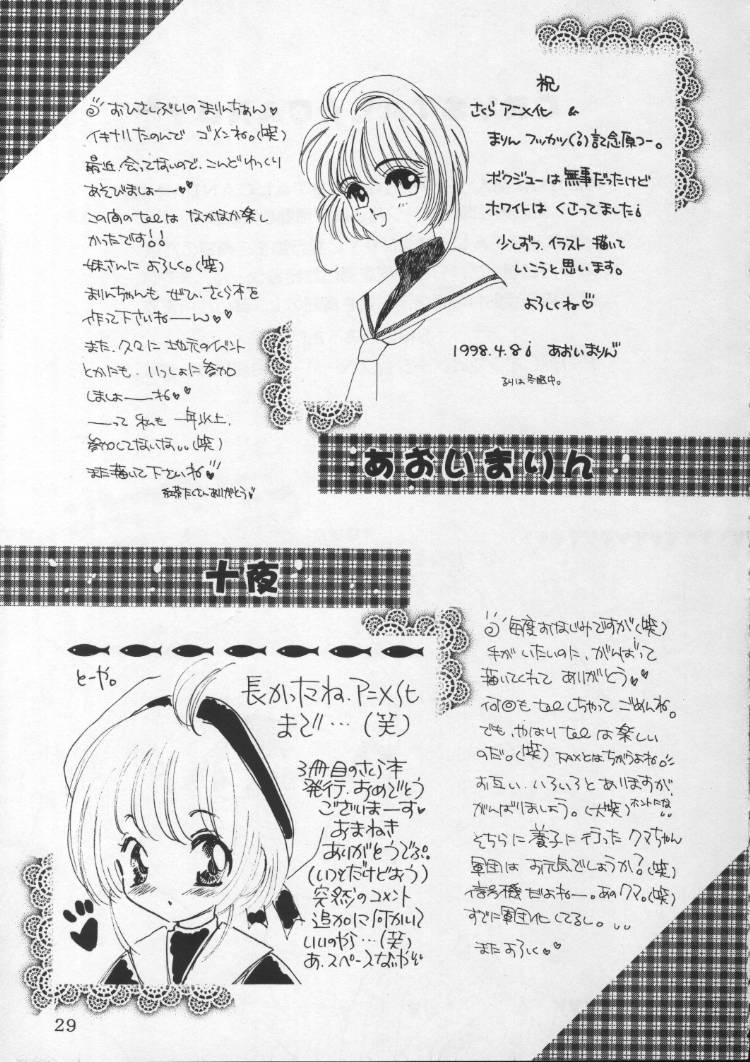 おひさしぶりの まりんちゃん
イキナリたのんで ゴメンね。(笑)
最近、会ってないので、こんどゆっくり
あそびましょー
この間のtelは なかなか楽し
かったです!!
妹さんに よろしく。(笑)
まりんちゃんも ぜひ、さくら本を
作って下さいねーん
また、久々に 地元のイベント
とかにも、いっしょに参加
しましょーね
―って 私も 一年以上、
参加してないな。(笑)
また描いて下さいね
たくさんありがとう
祝
さくら アニメ化 &
まりん フッカツ(る)記念原コー。
ボクジューは無事だったけど
ホワイトは くさってましたi
少しずつ、イラスト 描いて
いこうと思います。
よろしくね
1998.4.8i あおいまりん
るりは冬眠中。
あおいまりん
十夜
とーや。
長かったね、アニメ化
まで…(笑)
3冊目のさくら本
発行、おめでとう
ございまーす
おまねき
ありがとうでぷ。
(いつもだけどおう)
突然のコメント
追加に何かいて
いいのやら…(笑)
あ、スペースなしやぞ
毎度おなじみですが(笑)
手がいたいのに、がんばって
描いてくれて ありがとう
何回も telしちゃって ごめんね。
でも、やはり telは 楽しい
のだ。(笑) FAXとはちがうよねo
お互い、いろいろと ありますが
がんばりましょう。(大笑) ホントにな!!
そちらに 養子に 行った クマちゃん
軍団は お元気でしょうか?(笑)
信号機だよねー。あのクマ。(笑)
すでに軍団化してるし。
また よろしく
29